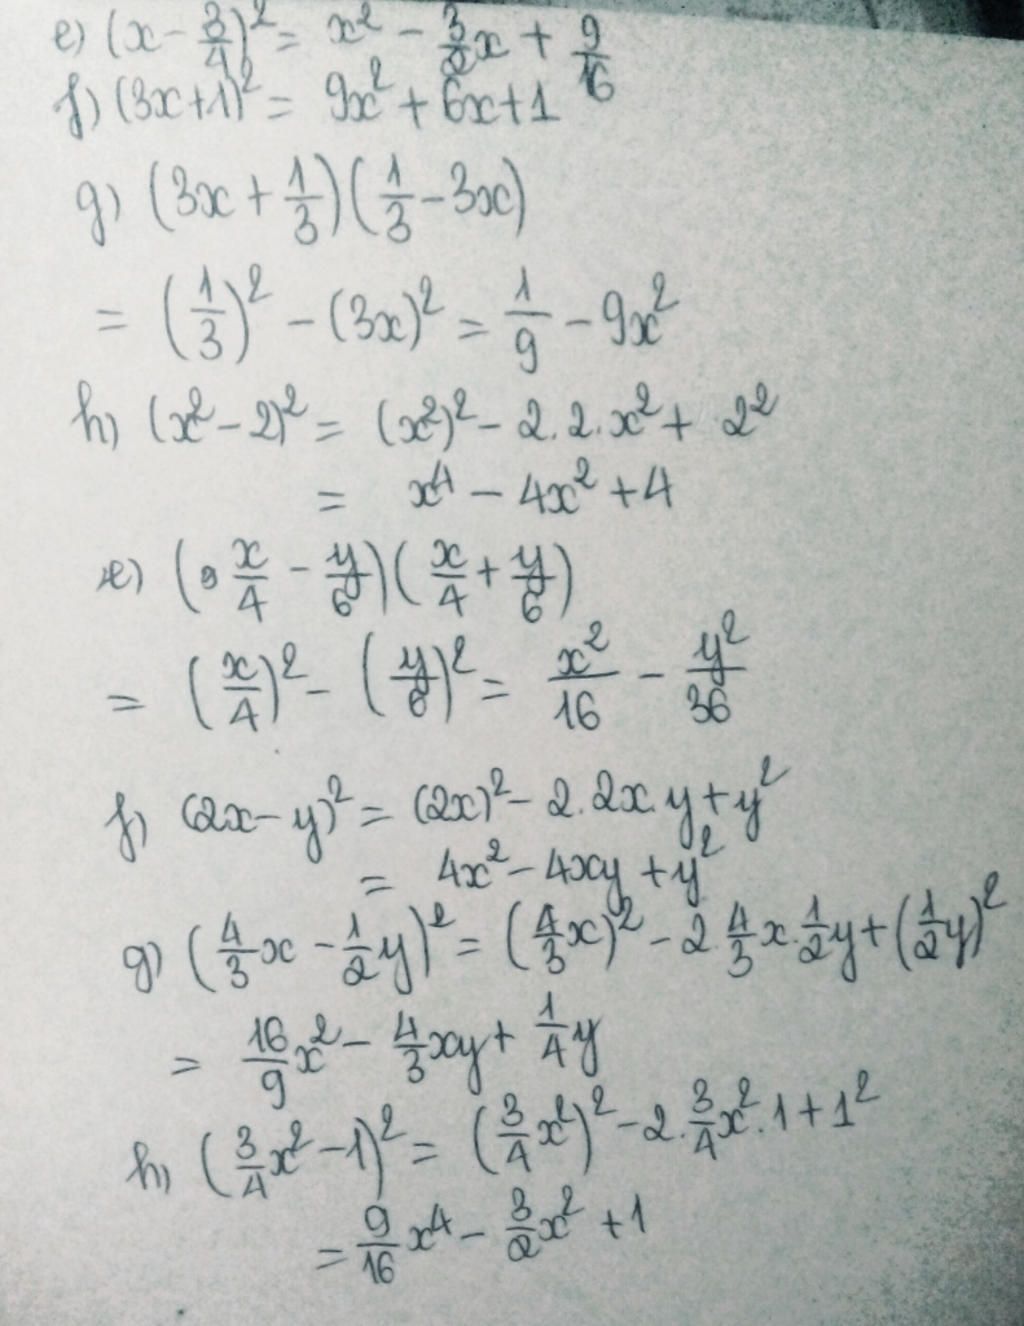 e) (x - 3/4)² = x² - 3/2x + 9/16
f) (3x+1)² = 9x² + 6x + 1
g) (3x + 1/3)(1/3 - 3x)
= (1/3)² - (3x)² = 1/9 - 9x²
h) (x² - 2)² = (x²)² - 2.2.x² + 2²
= x⁴ - 4x² + 4
e) (x/4 - y/6)(x/4 + y/6)
= (x/4)² - (y/6)² = x²/16 - y²/36
f) (2x - y)² = (2x)² - 2.2x.y + y²
= 4x² - 4xy + y²
g) (4/3x - 1/2y)² = (4/3x)² - 2.4/3x.1/2y + (1/2y)²
= 16/9x² - 4/3xy + 1/4y
h) (3/4x² - 1)² = (3/4x²)² - 2.3/4x².1 + 1²
= 9/16x⁴ - 3/2x² + 1